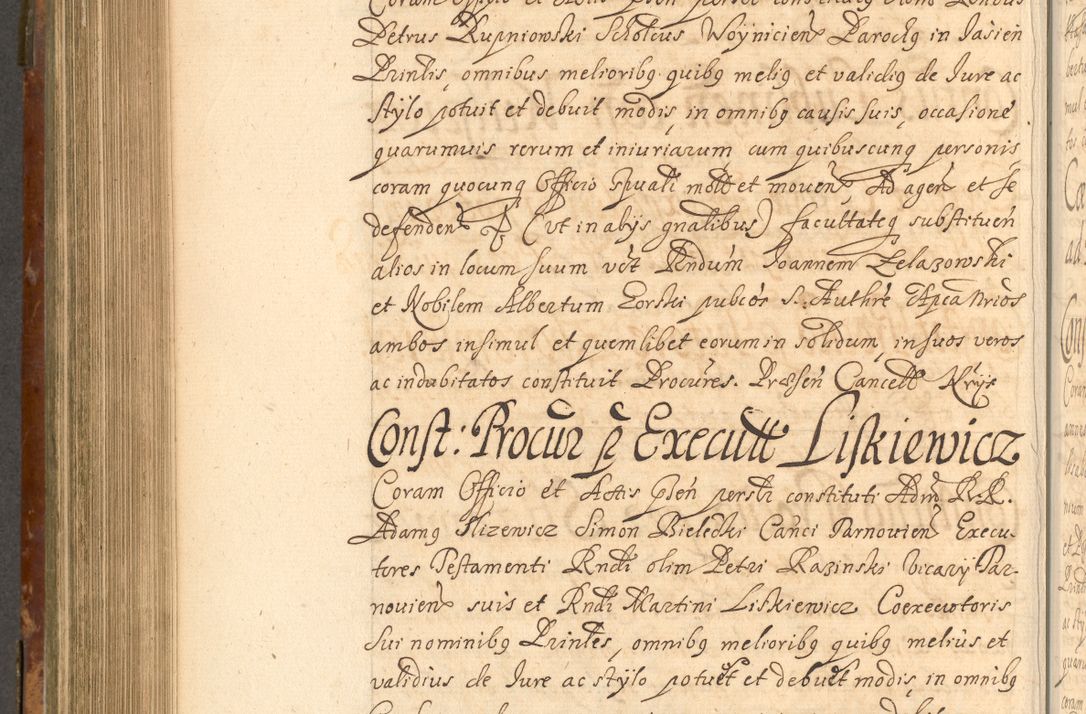 Petrus Rupniowski Scholcus Woÿnicien̄ Parochg in Jasień
Prinlis, omnibus melioribg quibg melig et validig de Jure ac
stÿlo potuit et debuit modis, in omnibg causis suis, occasione
quarumuis rerum et iniuriarum cum quibuscunq personis
coram quocunq Officio Spuali mōtt et mouen̄ Ad agen̄ et se
defenden̄ (vt in alÿs gn̄alibus) facultateq substituen̄
alios in locum suum vēt Rndum Joannem Zelazowski
et Nobilem Albertum Gorski pubcos S: Authre Apca Nrios
ambos insimul et quemlibet eorum in solidum, in suos veros
ac indubitatos constituit Procures. Præsen̄ Cancell Nrijs
Const: Procur p Execut̄t Liskiewicz
Coram Officio et Actis p̄lēn persti constituti Adm̄ R.R.
Adamg Slizewicz Simon Bielecki Can̄ci Tarnouien̄ Execu-
tores Testamenti Rndi olim Petri Razinski Vicarÿ Tar-
nouien̄ suis et Rndi Martini Liskiewicz Coexecutoris
Sui nominibg Prinlēs, omnibg melioribg quibg melius et
validius de Jure ac stÿlo potuet et debuet modis, in omnibg